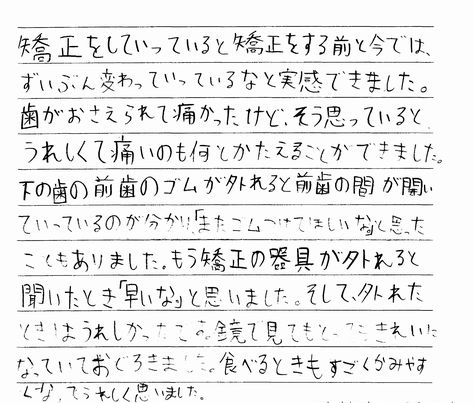 矯正をしていっていると矯正をする前と今では、
ずいぶん変わっていっているなと実感できました。
歯がおさえられて痛かったけど、そう思っていると、
うれしくて痛いのも何とかたえることができました。
下の歯の前歯のゴムが外れると前歯の間が開い
ていっているのが分かり「またゴムつけてほしいな」と思った
こともありました。もう矯正の器具が外れると
聞いたとき「早いな」と思いました。そして、外れた
ときはうれしかったです。鏡で見てもとってもきれいに
なっていておどろきました。食べるときもすごくかみやす
くなってうれしく思いました。